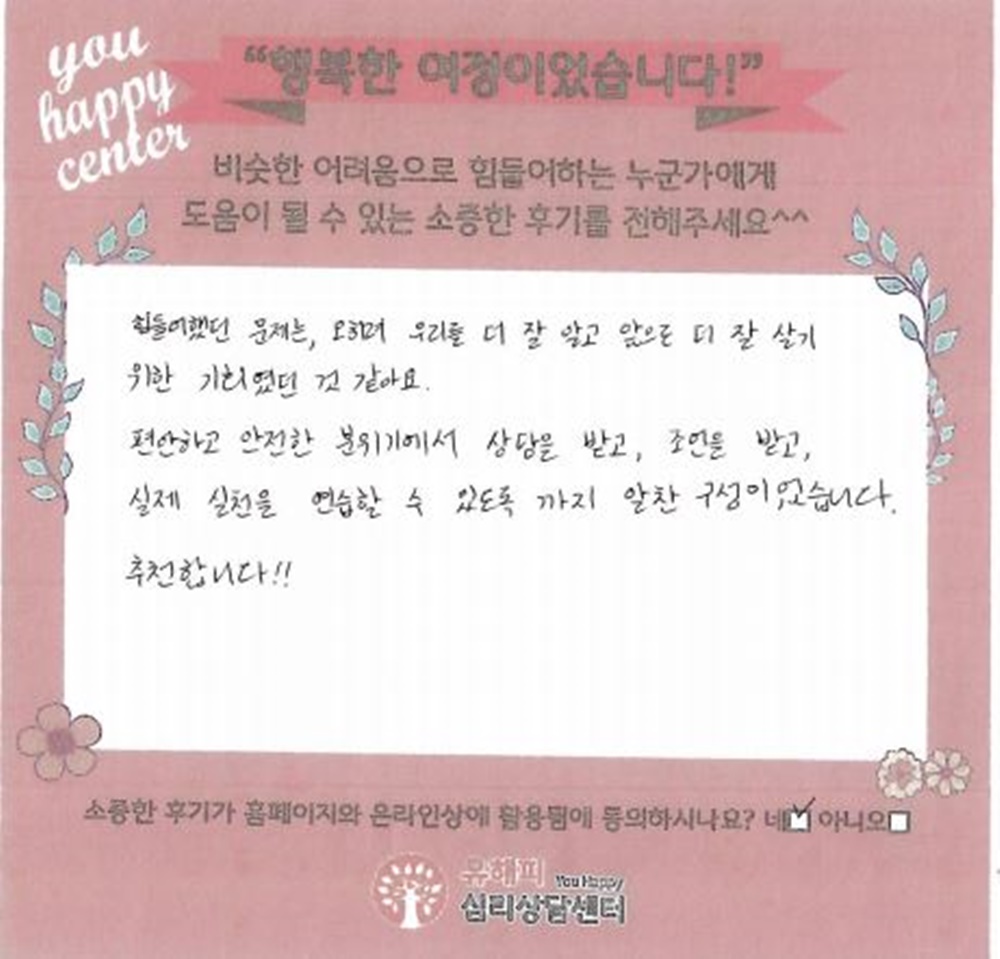 you
happy
center
“행복한 여정이었습니다!”
비슷한 어려움으로 힘들어하는 누군가에게
도움이 될 수 있는 소중한 후기를 전해주세요^^
힘들어했던 문제는, 오히려 우리를 더 잘 알고 앞으로 더 잘 살기
위한 기회였던 것 같아요.
편안하고 안전한 분위기에서 상담을 받고, 조언을 받고,
실제 실천을 연습할 수 있도록 까지 알찬 구성이었습니다.
추천합니다!!
소중한 후기가 홈페이지와 온라인상에 활용됨에 동의하시나요? 네 아니오
유해피 You Happy
심리상담센터